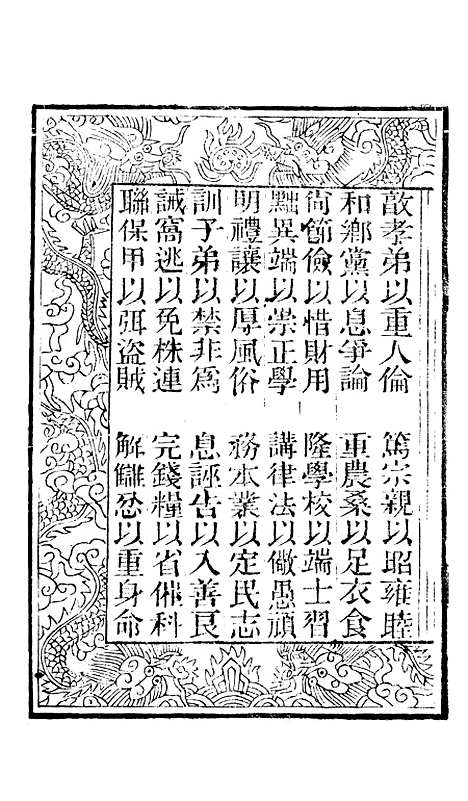 敦孝弟以重人倫　篤宗親以昭雍睦
和鄉黨以息爭論　重農桑以足衣食
尙節儉以惜財用　隆學校以端士習
黜異端以崇正學　講律法以儆愚頑
明禮讓以厚風俗　務本業以定民志
訓子弟以禁非爲　息誣告以入善良
誡窩逃以免株連　完錢糧以省催科
聯保甲以弭盜賊　解讎忿以重身命